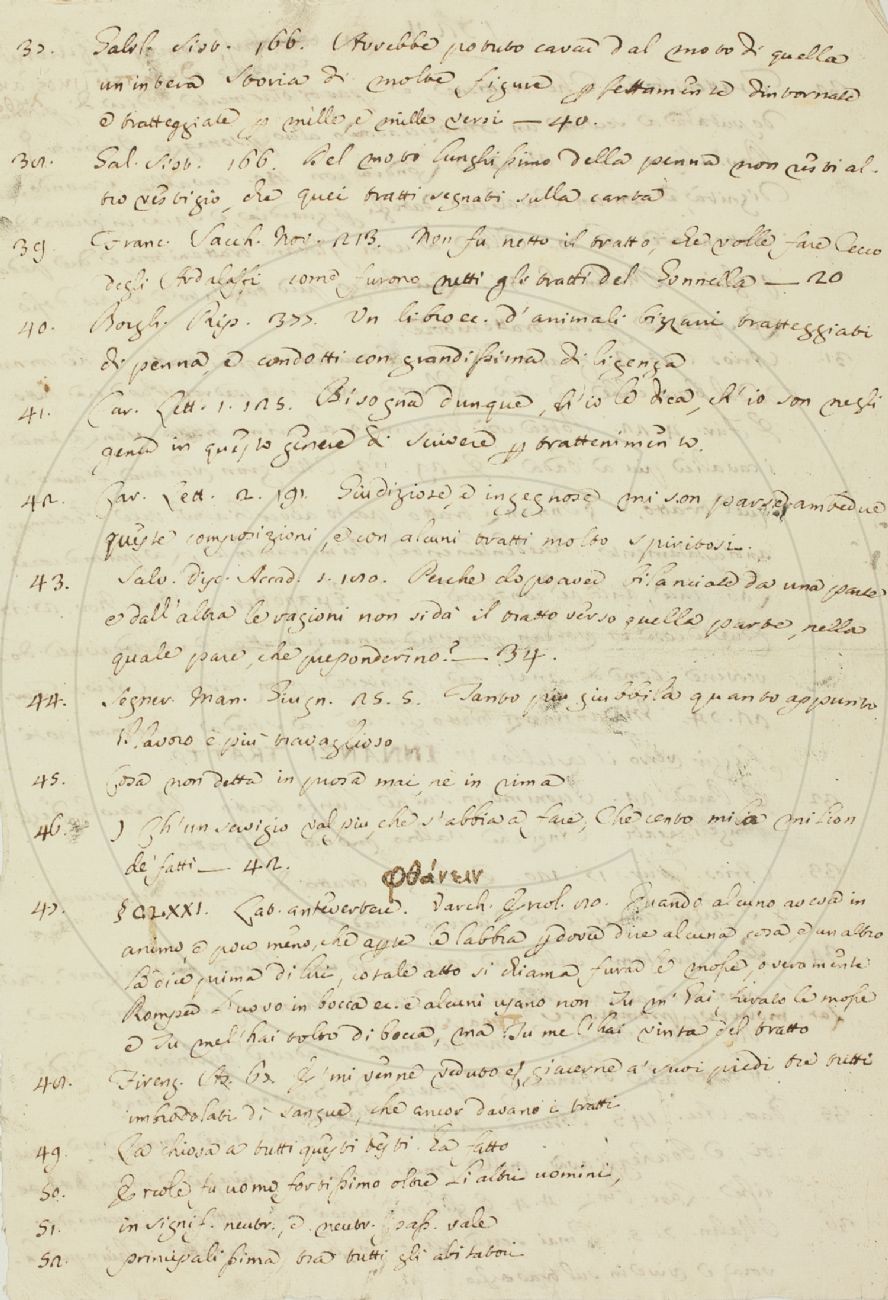 37. Galil. Sist. 166. Avrebbe potuto cavar dal moto di quella
un'intera storia di molte figure pfettamente dintornate
e tratteggiate p mille, e mille versi — 40.
38. Gal. Sist. 166. Del moto lunghissimo della penna non resti al-
tro vestigio, che quei tratti segnati sulla carta
39. Franc. Sacch. Nov. 213. Non fu netto il tratto, che volle fare Cecco
degli Ardalaffi come furono netti gli tratti del Gonnella — 20
40. Borgh. Rip. 377. Un libro ec. d'animali bizzarri tratteggiati
di penna e condotti con grandissima diligenza
41. Car. Lett. 1. 125. Bisogna dunque, ch'io le dica, ch'io son negli
gente in questo genere di scrivere p trattenimento.
42. Car. Lett. 2. 191. Giudiziose, e ingegnose mi son parse ambedue
queste composizioni, e con alcuni tratti molto spiritosi.
43. Salv. disc. Accad. 1. 180. Perchè dopo aver bilanciate da una parte
e dall'altra le ragioni non si da il tratto verso quella parte, nella
quale pare, che preponderino? — 34.
44. Segner. Man. Giugn. 25. 5. Tanto più giubbila quanto appunto
Il lavoro è più travaglioso
45. Cosa non detta in prosa mai, nè in rima
46. ) Ch'un servigio val più, che s'abbia a fare, Che cento mila milion
de' fatti — 42.
φθάνειν
47. § CLXXI. Lab. antevertere. Varch. Ercol. 80. Quando alcuno aveva in
animo, e poco meno, che apte le labbra p dover dire alcuna cosa, e un altro
la dice prima di lui, cotale atto si chiama furar le mosse, o veramente
Romper l'uovo in bocca ec. e alcuni usano non Tu m'hai furato le mosse
e Tu me l'hai tolto di bocca, ma Tu me l'hai vinta del tratto
48. Firenz. As. 67. E' mi venne veduto giacerne a' suoi piedi tre tutti
imbrodolati di sangue, che ancor davano i tratti
49. La chiosa a tutti questi testi ha fatto
50. Ercole fu uomo fortissimo oltre li altri uomini,
51. in signif. neutr., e neutr. pass. vale
52. principalissima tra tutti gli abitatori